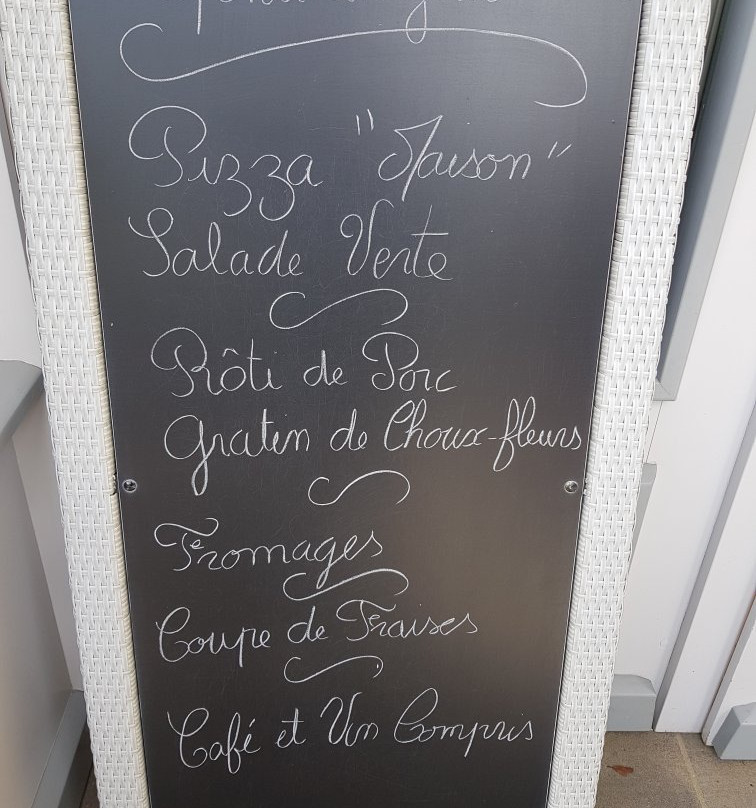 Pizza "Maison"
Salade Verte
Rôti de Porc
Gratin de Choux-fleurs
Fromages
Coupe de Fraises
Café et Vin Compris